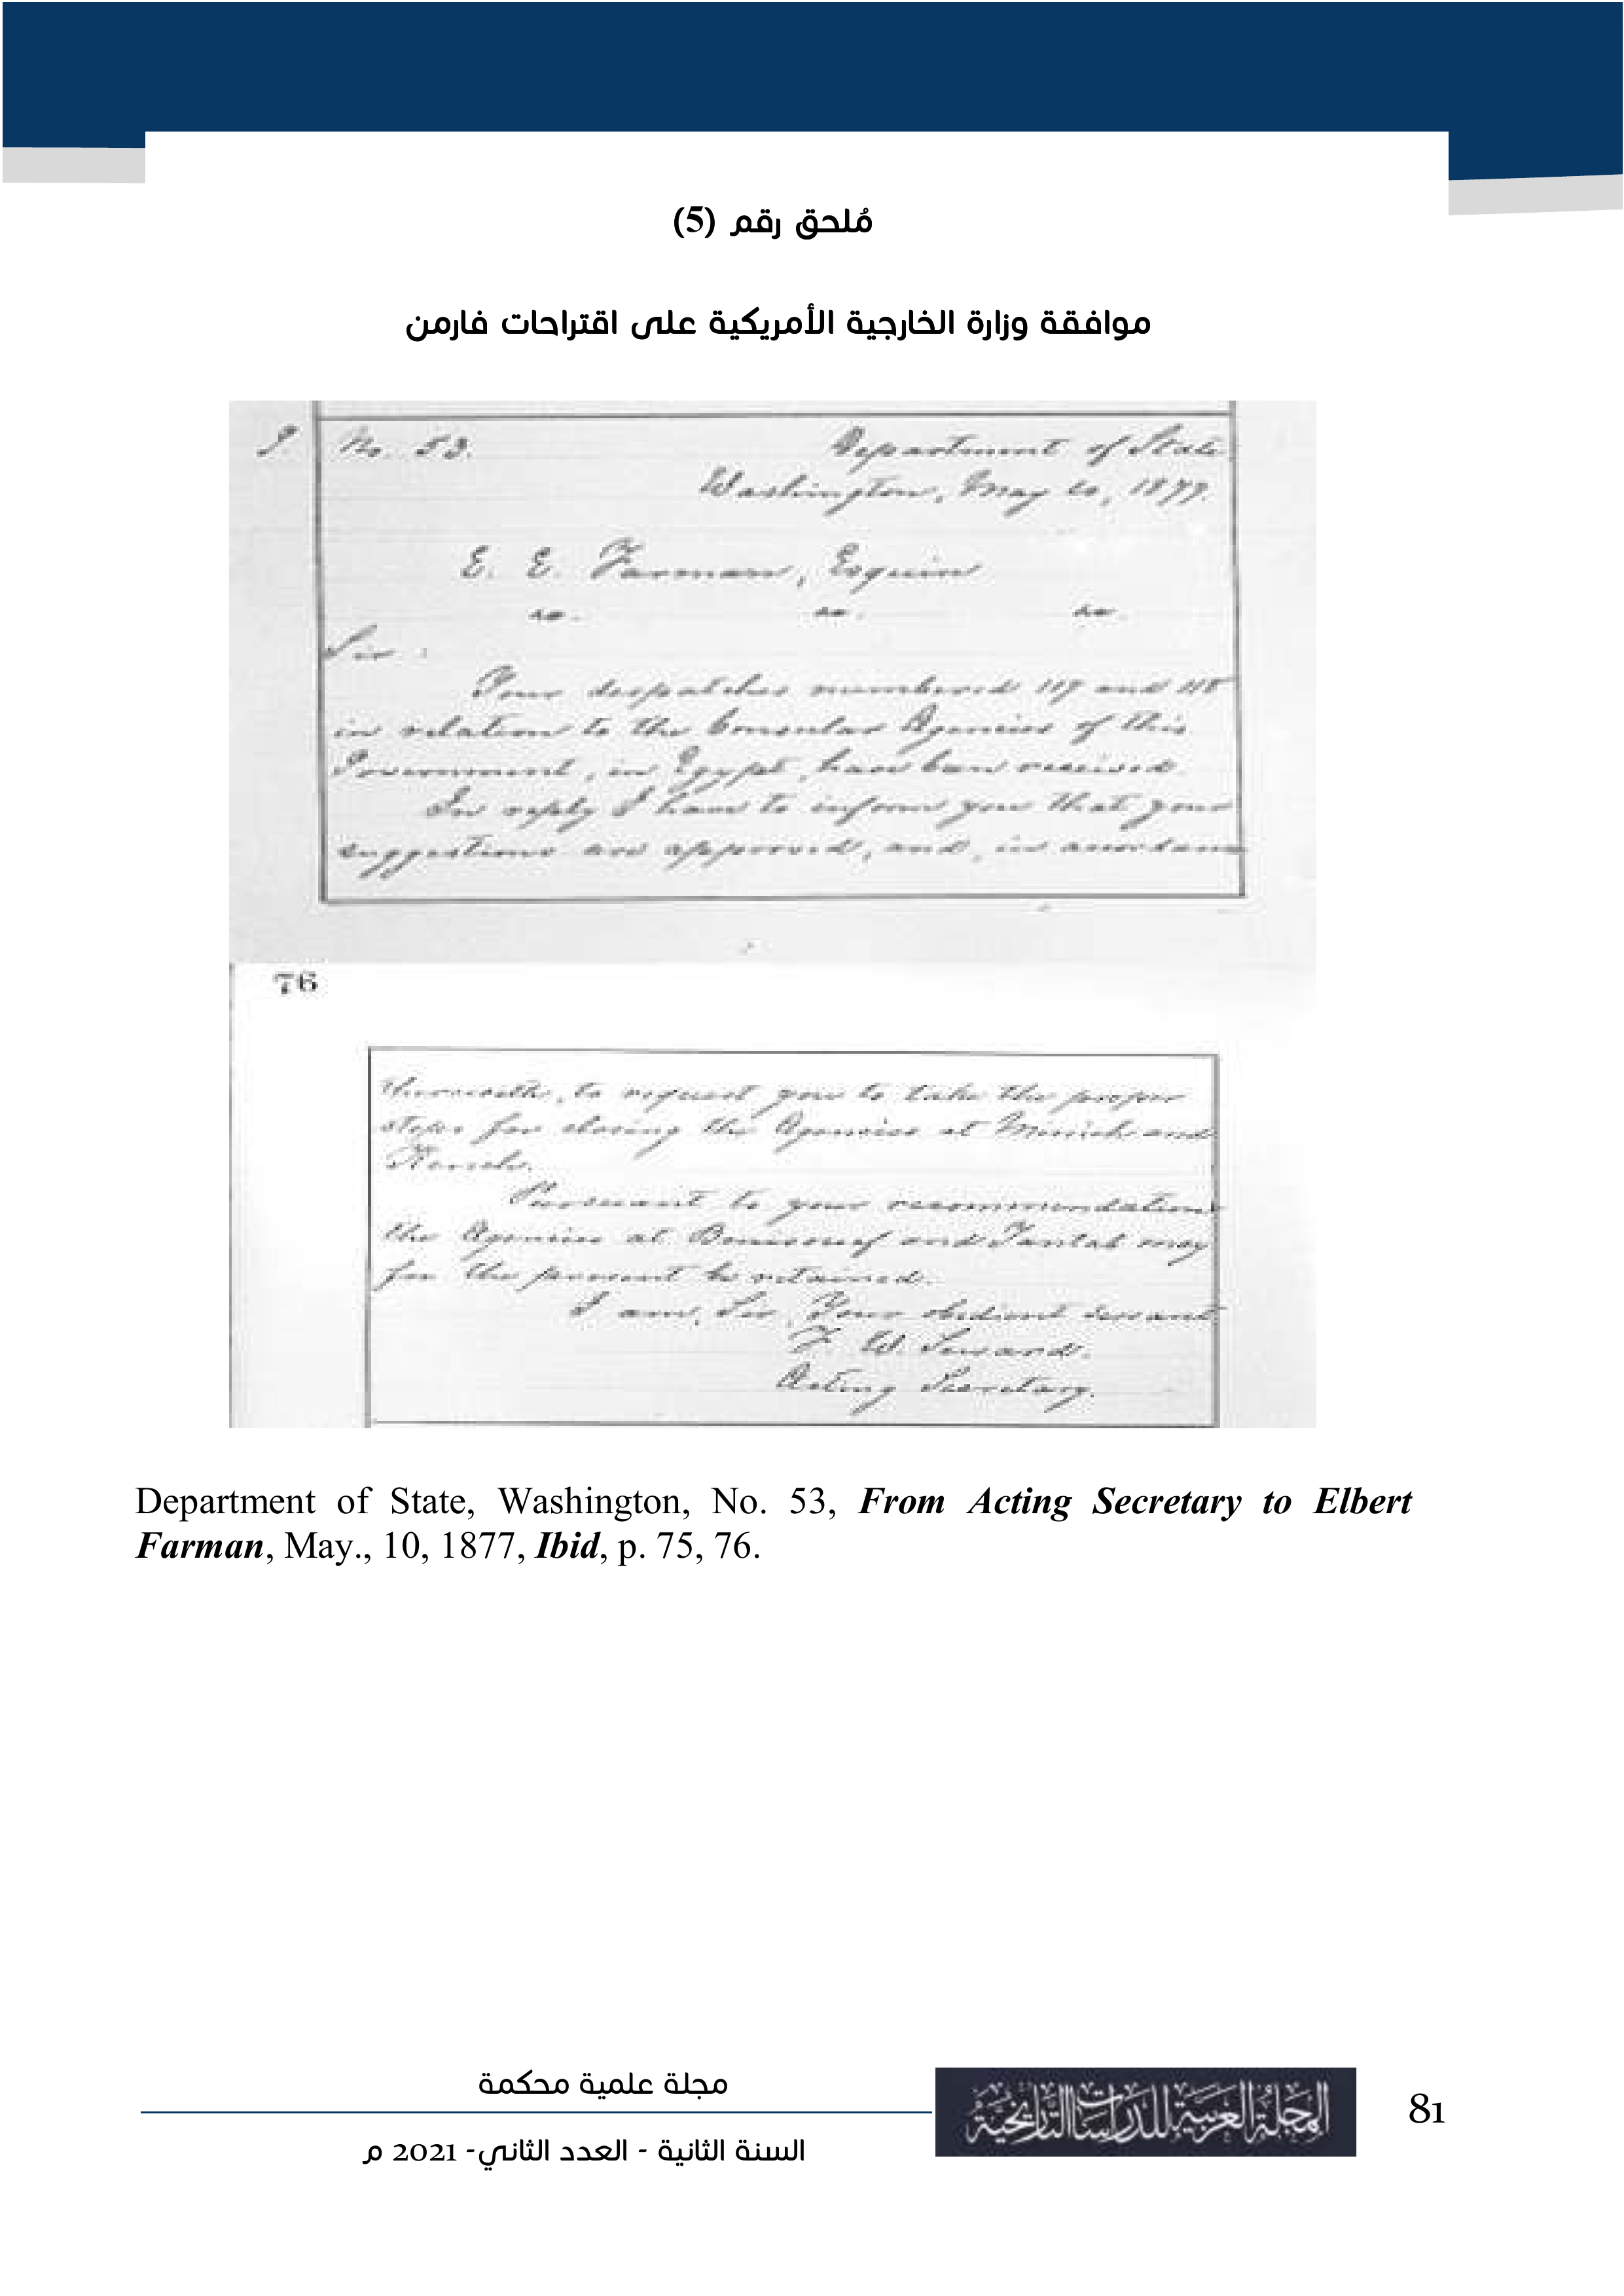 مُلحق رقم (5)
موافقة وزارة الخارجية الأمريكية على اقتراحات فارمن
No. 53. Department of State
Washington, May 10, 1877.
E. E. Farman, Esquire
&c. &c. &c.
Sir :
Your despatches numbered 117 and 118
in relation to the Consular Agencies of this
Government, in Egypt, have been received.
In reply I have to inform you that your
suggestions are approved, and, in accordance
76
therewith, to request you to take the proper
steps for closing the Agencies at Minieh and
Keneh.
Pursuant to your recommendations
the Agencies at Benisouef and Tantah may
for the present be retained.
I am, Sir, Your obedient servant
F. W. Seward.
Acting Secretary.
Department of State, Washington, No. 53, From Acting Secretary to Elbert
Farman, May., 10, 1877, Ibid, p. 75, 76.
مجلة علمية محكمة
المجلة العربية للدراسات التاريخية
81
السنة الثانية - العدد الثاني- 2021 م